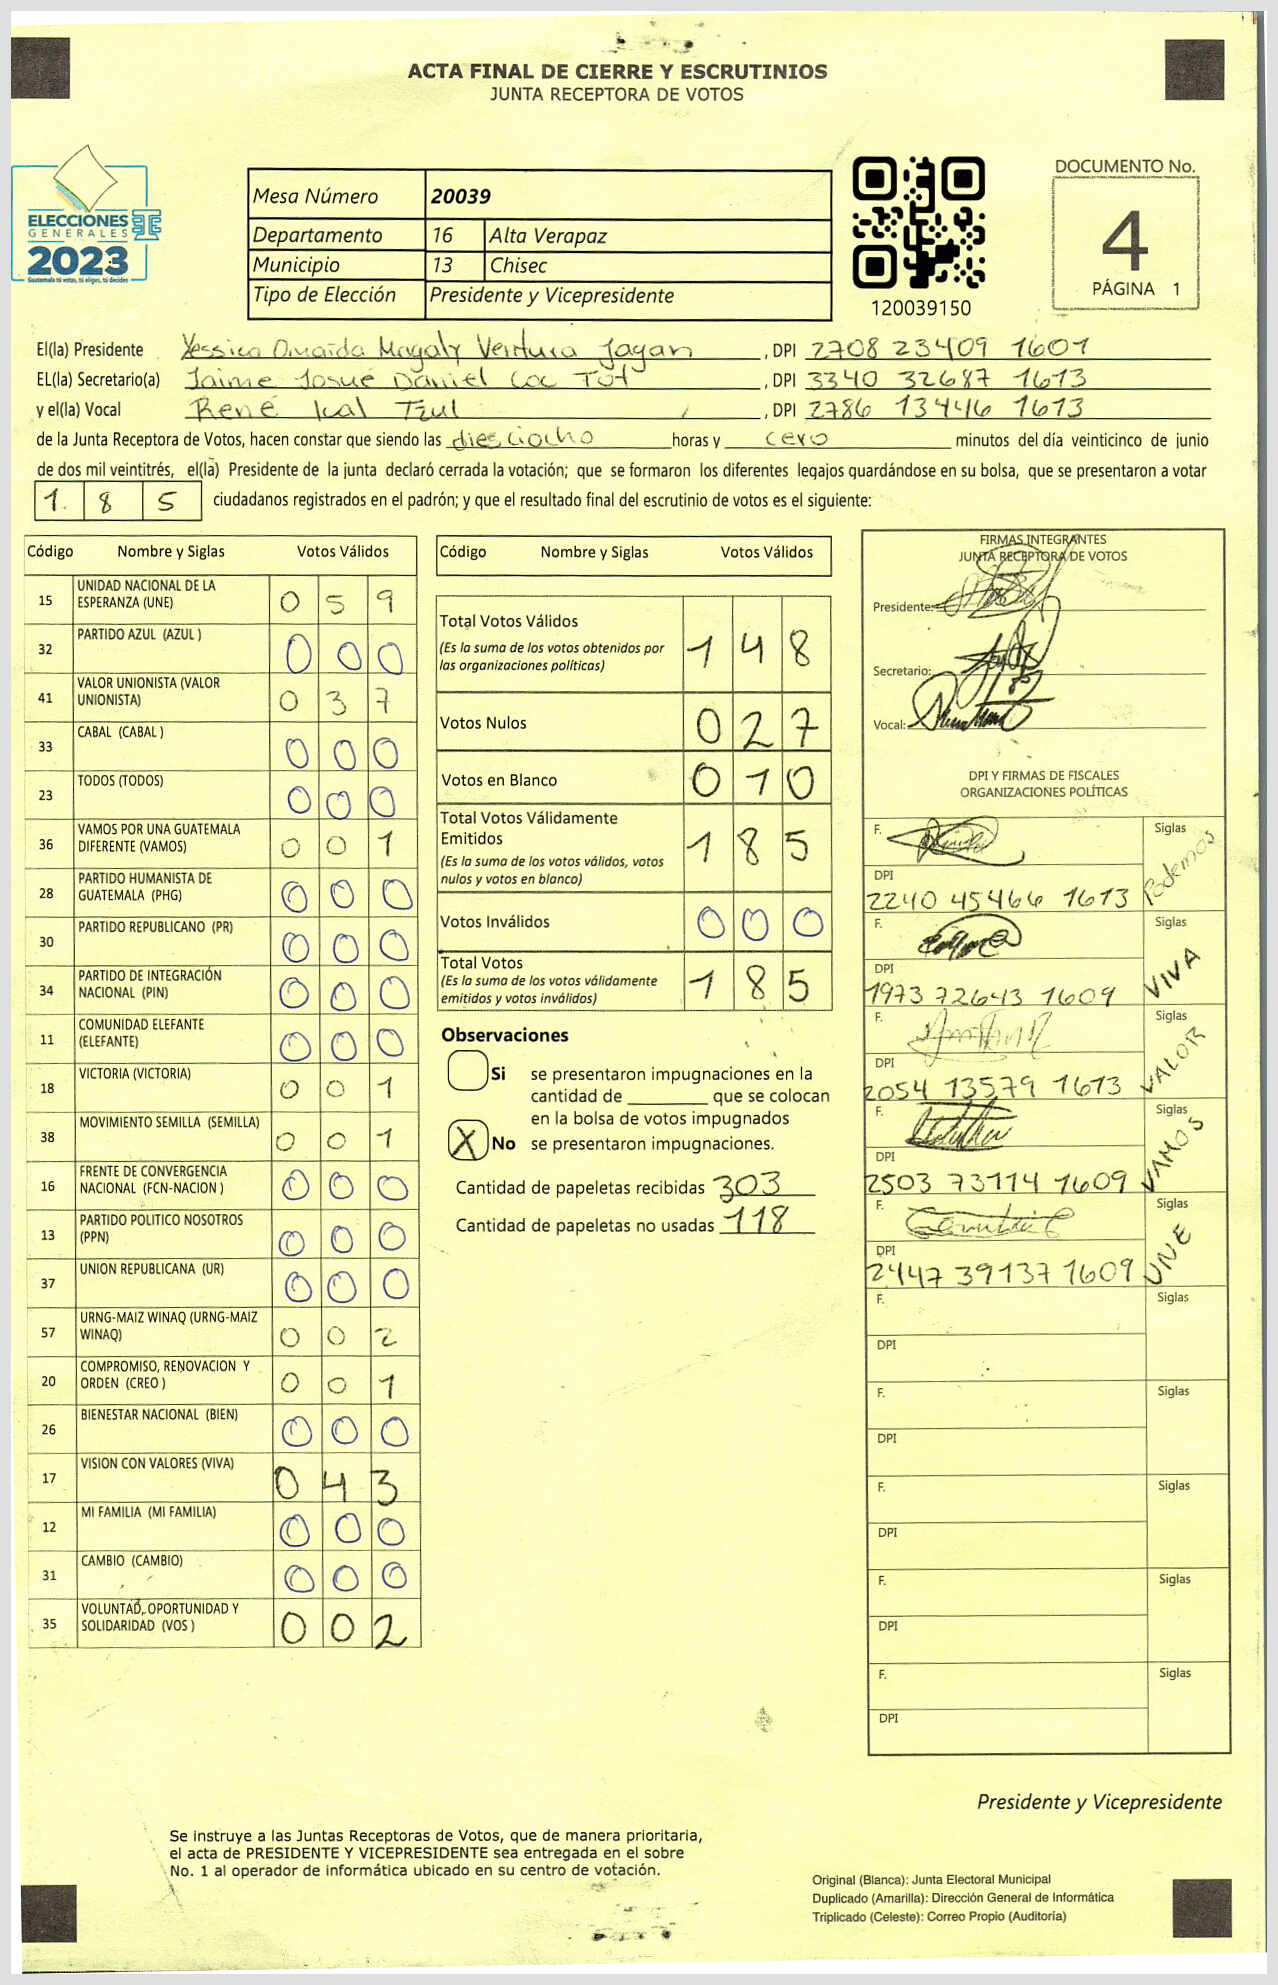 ACTA FINAL DE CIERRE Y ESCRUTINIOS
JUNTA RECEPTORA DE VOTOS
ELECCIONES
GENERALES
2023
Guatemala tú votas, tú eliges, tú decides
Mesa Número 20039
Departamento 16 Alta Verapaz
Municipio 13 Chisec
Tipo de Elección Presidente y Vicepresidente
120039150
DOCUMENTO No.
4
PÁGINA 1
El(la) Presidente Yessica Omaida Magaly Ventura Jayan, DPI 2708 23409 1601
EL(la) Secretario(a) Jaime Josué Daniel Coc Tot, DPI 3340 32687 1613
y el(la) Vocal René Ical Tzul, DPI 2786 13446 1613
de la Junta Receptora de Votos, hacen constar que siendo las diesciocho horas y cero minutos del día veinticinco de junio
de dos mil veintitrés, el(la) Presidente de la junta declaró cerrada la votación; que se formaron los diferentes legajos quardándose en su bolsa, que se presentaron a votar
1 8 5 ciudadanos registrados en el padrón; y que el resultado final del escrutinio de votos es el siguiente:
Código Nombre y Siglas Votos Válidos
15 UNIDAD NACIONAL DE LA ESPERANZA (UNE) 0 5 9
32 PARTIDO AZUL (AZUL ) 0 0 0
41 VALOR UNIONISTA (VALOR UNIONISTA) 0 3 7
33 CABAL (CABAL ) 0 0 0
23 TODOS (TODOS) 0 0 0
36 VAMOS POR UNA GUATEMALA DIFERENTE (VAMOS) 0 0 1
28 PARTIDO HUMANISTA DE GUATEMALA (PHG) 0 0 0
30 PARTIDO REPUBLICANO (PR) 0 0 0
34 PARTIDO DE INTEGRACIÓN NACIONAL (PIN) 0 0 0
11 COMUNIDAD ELEFANTE (ELEFANTE) 0 0 0
18 VICTORIA (VICTORIA) 0 0 1
38 MOVIMIENTO SEMILLA (SEMILLA) 0 0 1
16 FRENTE DE CONVERGENCIA NACIONAL (FCN-NACION ) 0 0 0
13 PARTIDO POLITICO NOSOTROS (PPN) 0 0 0
37 UNION REPUBLICANA (UR) 0 0 0
57 URNG-MAIZ WINAQ (URNG-MAIZ WINAQ) 0 0 2
20 COMPROMISO, RENOVACION Y ORDEN (CREO ) 0 0 1
26 BIENESTAR NACIONAL (BIEN) 0 0 0
17 VISION CON VALORES (VIVA) 0 4 3
12 MI FAMILIA (MI FAMILIA) 0 0 0
31 CAMBIO (CAMBIO) 0 0 0
35 VOLUNTAD, OPORTUNIDAD Y SOLIDARIDAD (VOS ) 0 0 2
Código Nombre y Siglas Votos Válidos
Total Votos Válidos 1 4 8
(Es la suma de los votos obtenidos por
las organizaciones políticas)
Votos Nulos 0 2 7
Votos en Blanco 0 1 0
Total Votos Válidamente
Emitidos 1 8 5
(Es la suma de los votos válidos, votos
nulos y votos en blanco)
Votos Inválidos 0 0 0
Total Votos 1 8 5
(Es la suma de los votos válidamente
emitidos y votos inválidos)
Observaciones
Si se presentaron impugnaciones en la
cantidad de ________ que se colocan
en la bolsa de votos impugnados
X No se presentaron impugnaciones.
Cantidad de papeletas recibidas 303
Cantidad de papeletas no usadas 118
FIRMAS INTEGRANTES
JUNTA RECEPTORA DE VOTOS
Presidente:
Secretario:
Vocal:
DPI Y FIRMAS DE FISCALES
ORGANIZACIONES POLÍTICAS
F. Siglas Podemos
DPI
2240 45466 1613
F. Siglas VIVA
DPI
1973 72643 1609
F. Siglas VALOR
DPI
2054 13579 1613
F. Siglas VAMOS
DPI
2503 73114 1609
F. Siglas UNE
DPI
2447 39137 1609
F. Siglas
DPI
F. Siglas
DPI
F. Siglas
DPI
F. Siglas
DPI
F. Siglas
DPI
Presidente y Vicepresidente
Se instruye a las Juntas Receptoras de Votos, que de manera prioritaria,
el acta de PRESIDENTE Y VICEPRESIDENTE sea entregada en el sobre
No. 1 al operador de informática ubicado en su centro de votación.
Original (Blanca): Junta Electoral Municipal
Duplicado (Amarilla): Dirección General de Informática
Triplicado (Celeste): Correo Propio (Auditoría)